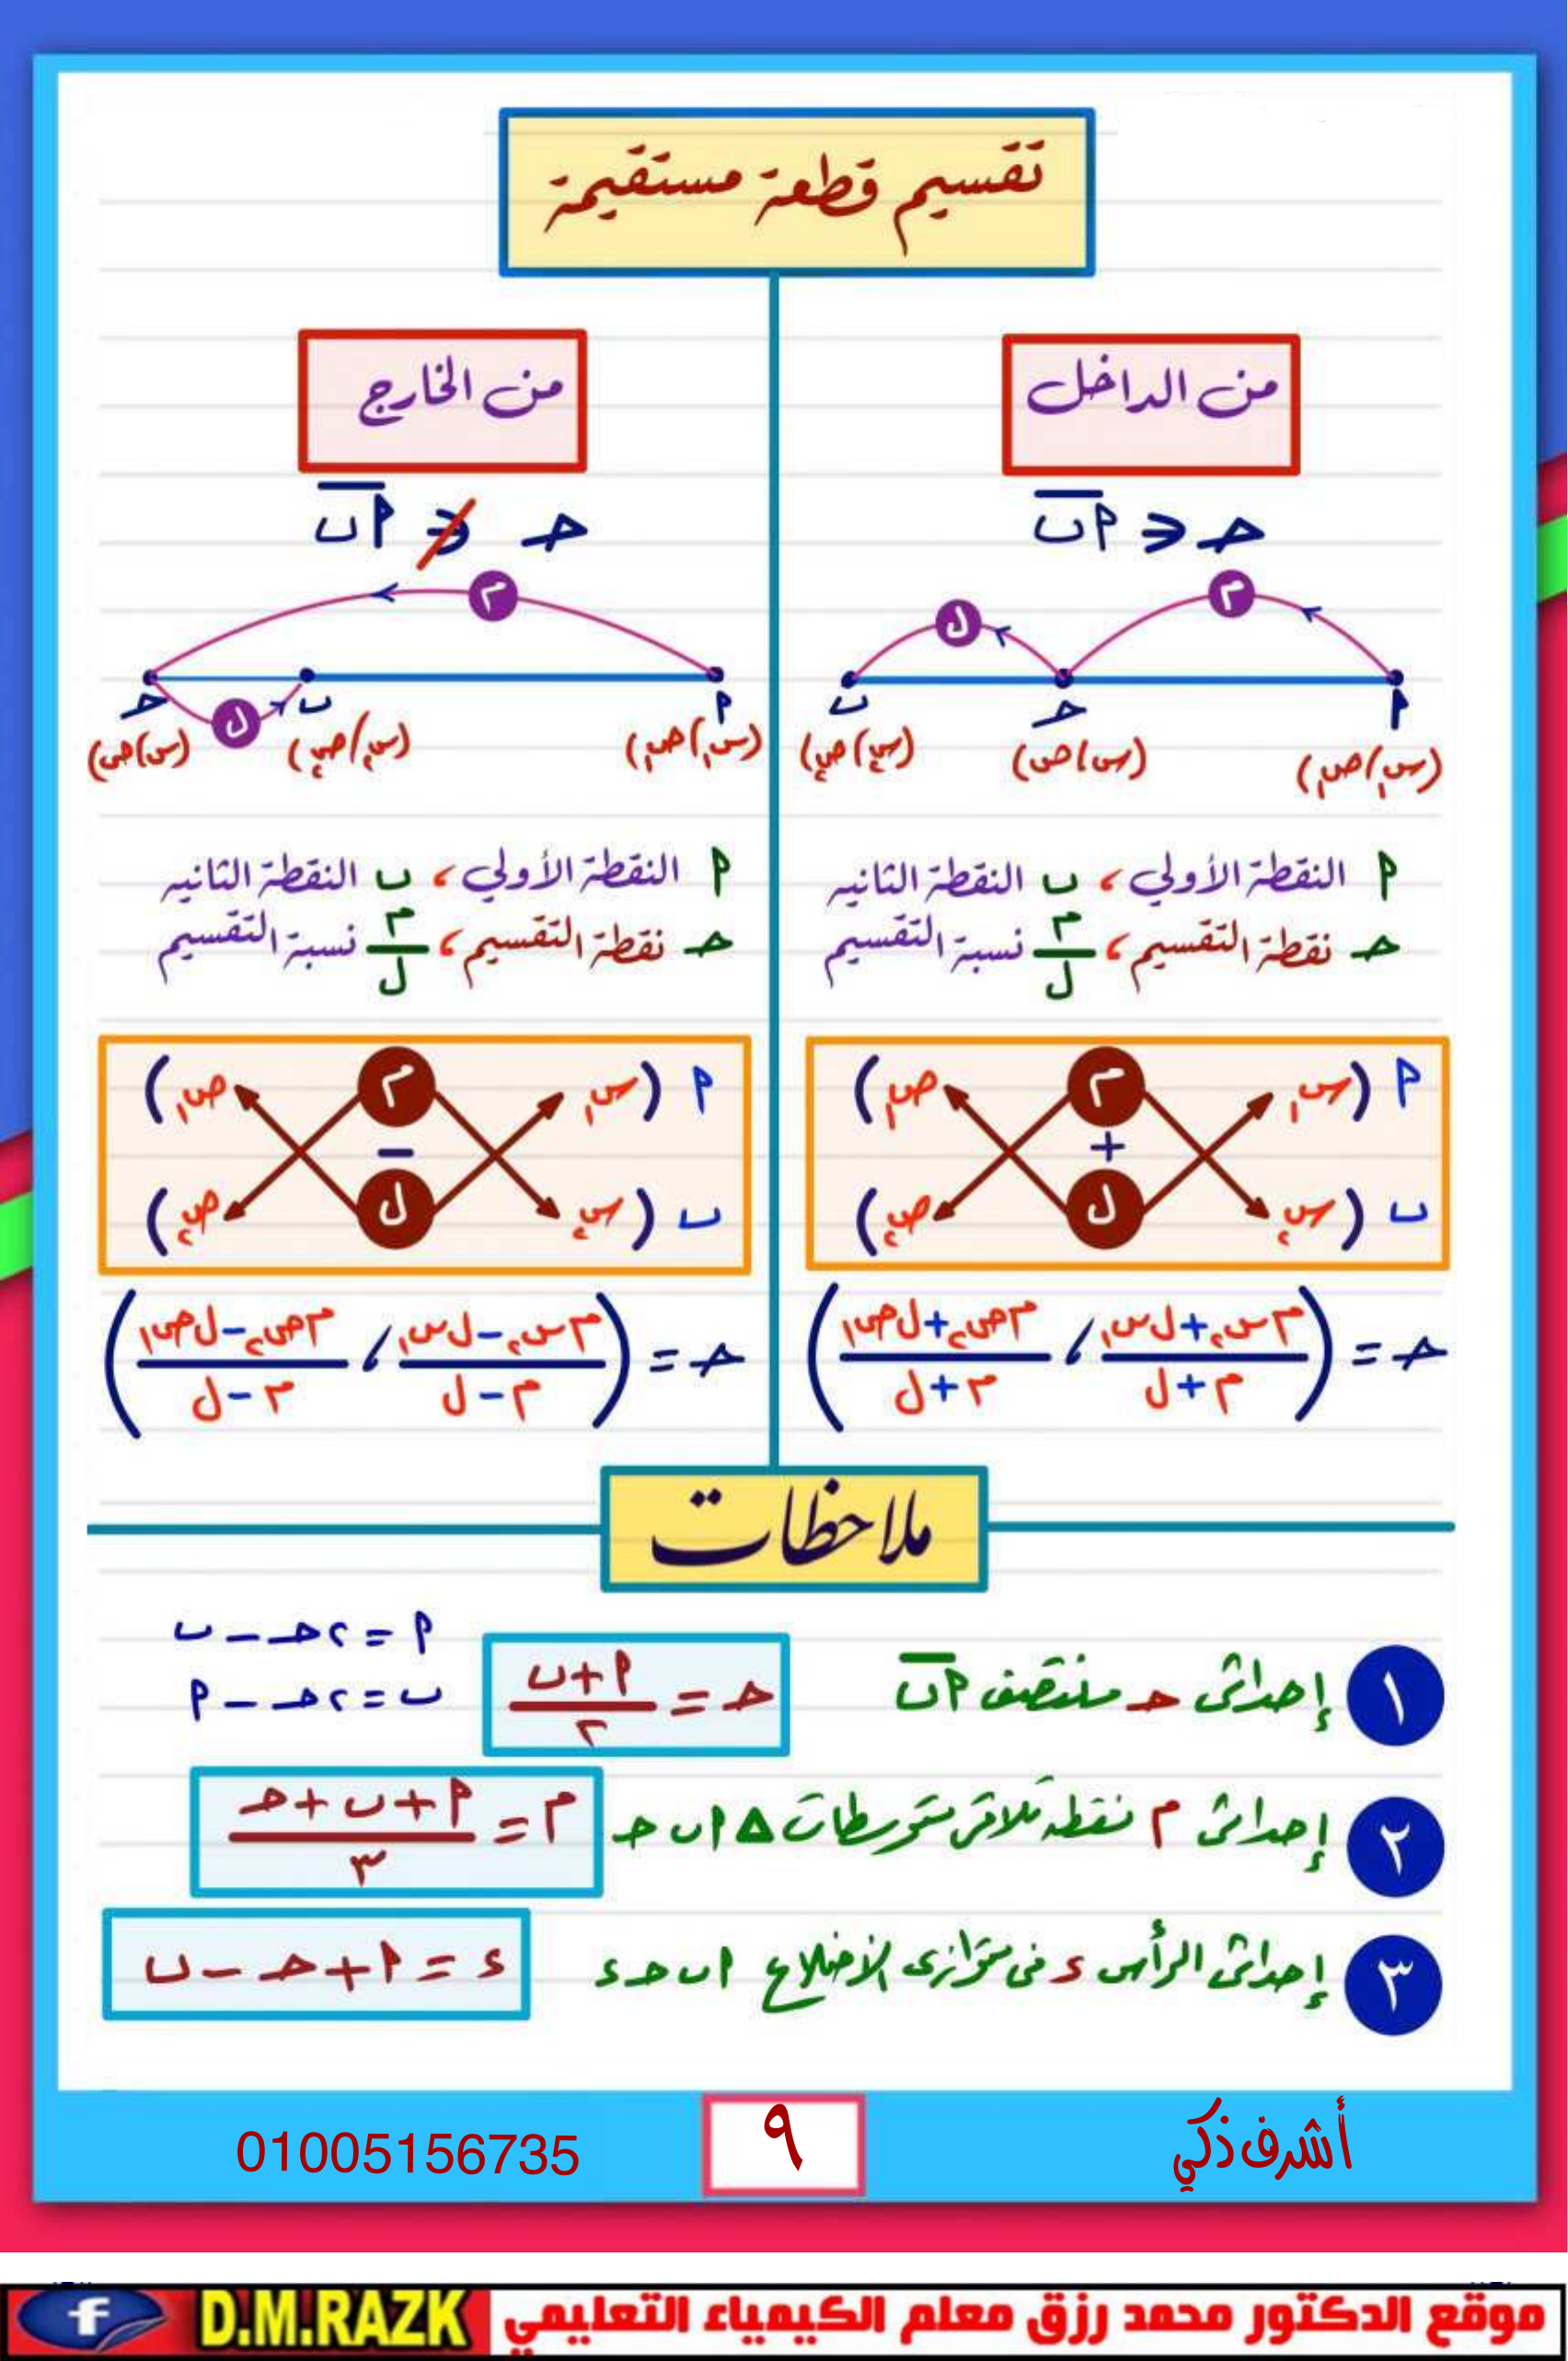 تقسيم قطعة مستقيمة
من الداخل
حـ ∈ أب
م
ل
أ
حـ
ب
(س١, ص١)
(س, ص)
(س٢, ص٢)
أ النقطة الأولى، ب النقطة الثانيه
حـ نقطة التقسيم، م/ل نسبة التقسيم
أ (س١ م ص١)
+
ب (س٢ ل ص٢)
حـ = ((م س٢ + ل س١)/(م + ل) , (م ص٢ + ل ص١)/(م + ل))
من الخارج
حـ ∉ أب
م
أ
ب
حـ
ل
(س١, ص١)
(س٢, ص٢)
(س, ص)
أ النقطة الأولى، ب النقطة الثانيه
حـ نقطة التقسيم، م/ل نسبة التقسيم
أ (س١ م ص١)
−
ب (س٢ ل ص٢)
حـ = ((م س٢ − ل س١)/(م − ل) , (م ص٢ − ل ص١)/(م − ل))
ملاحظات
١ إحداثى حـ منتصف أب حـ = (أ + ب)/٢
أ = ٢حـ − ب
ب = ٢حـ − أ
٢ إحداثى م نقطة تلاقى متوسطات △ أ ب حـ م = (أ + ب + حـ)/٣
٣ إحداثى الرأس ء فى متوازى الأضلاع أ ب حـ ء ء = أ + حـ − ب
أشرف ذكي
٩
01005156735
موقع الدكتور محمد رزق معلم الكيمياء التعليمي D.M.RAZK f